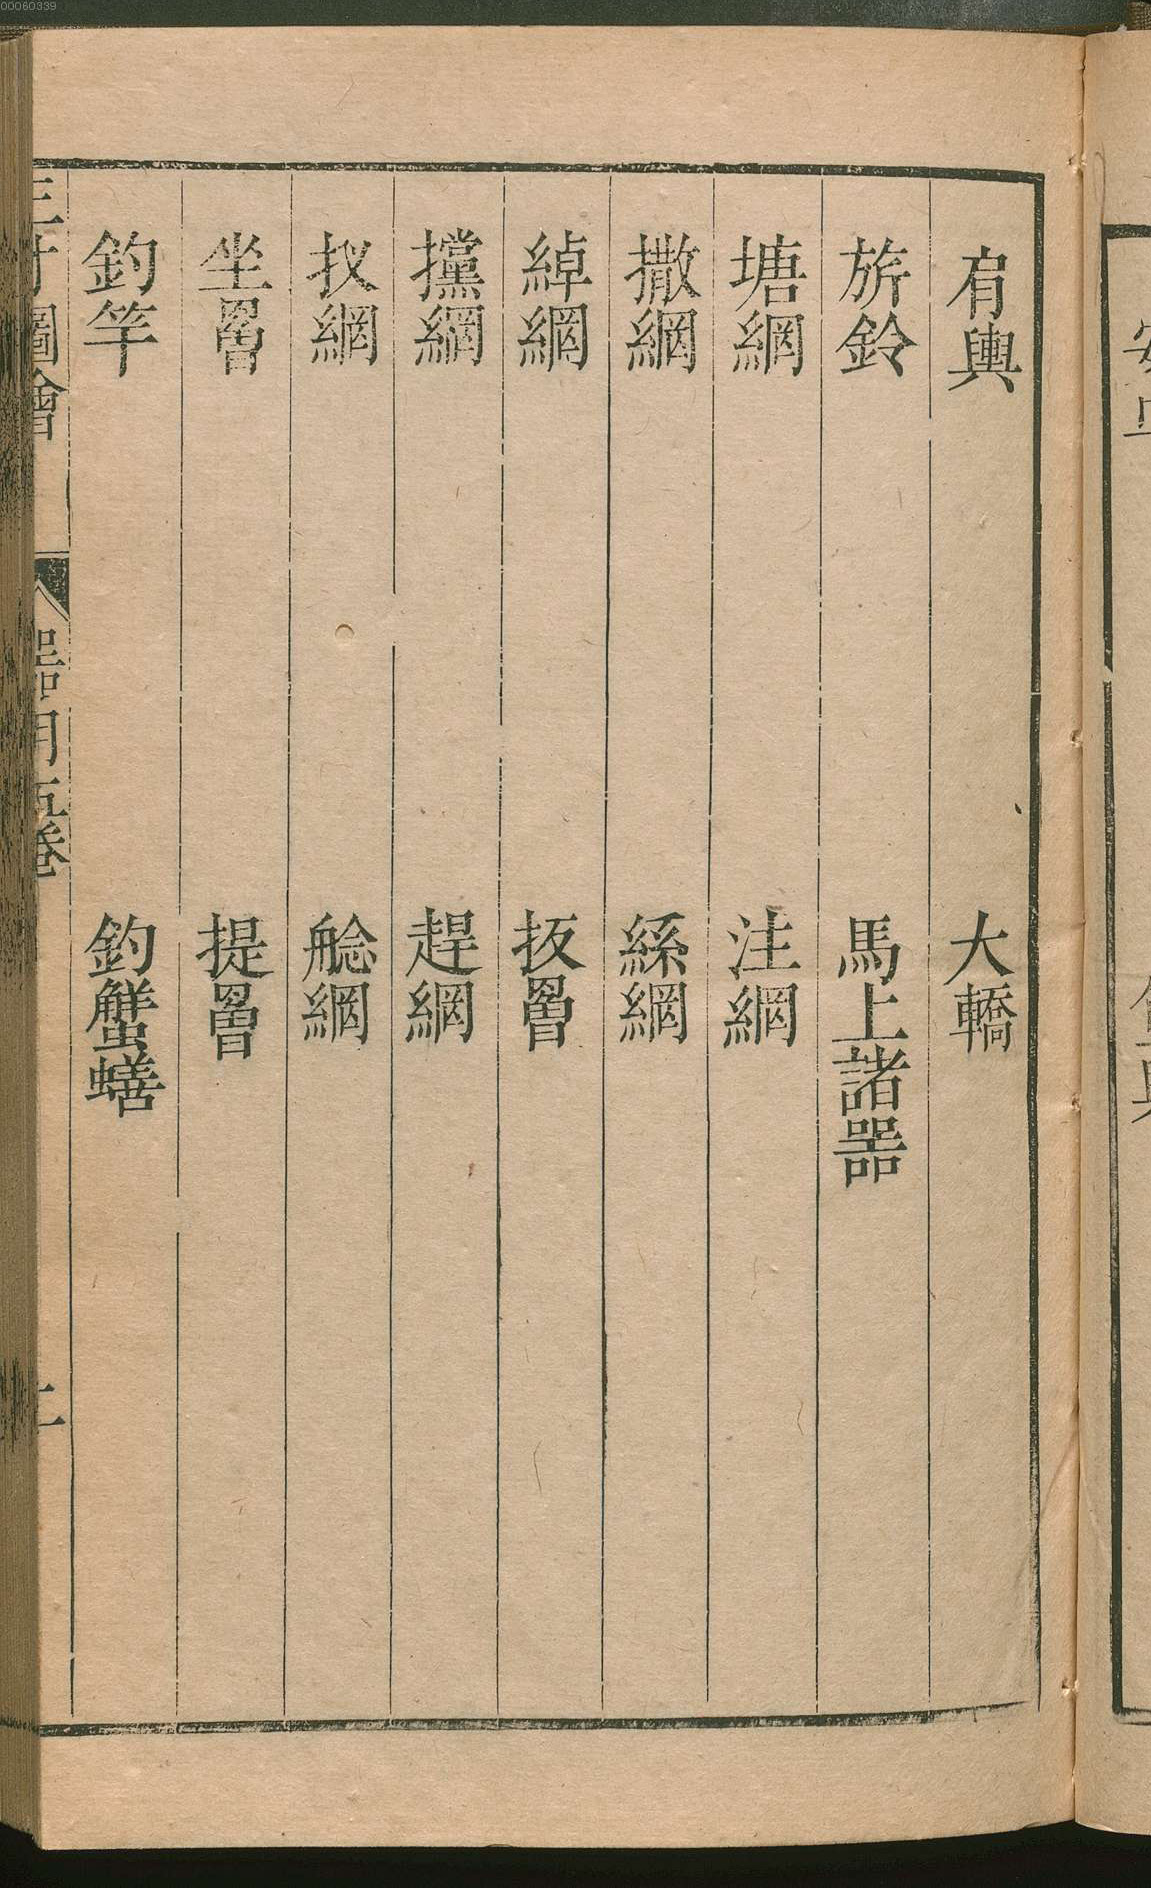 00060339
肩輿 大轎
旂鈴 馬上諸器
塘網 注網
撒網 絲網
綽網 扳罾
攩網 趕網
扠網 艌網
坐罾 提罾
釣竿 釣蟹蟮
三才圖會 器用五卷 二